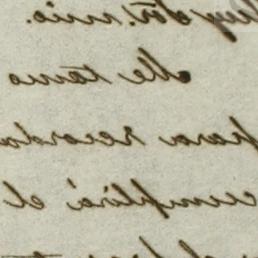 Muy Sor. mio.
Me tomo
para recorda
cumplirá el